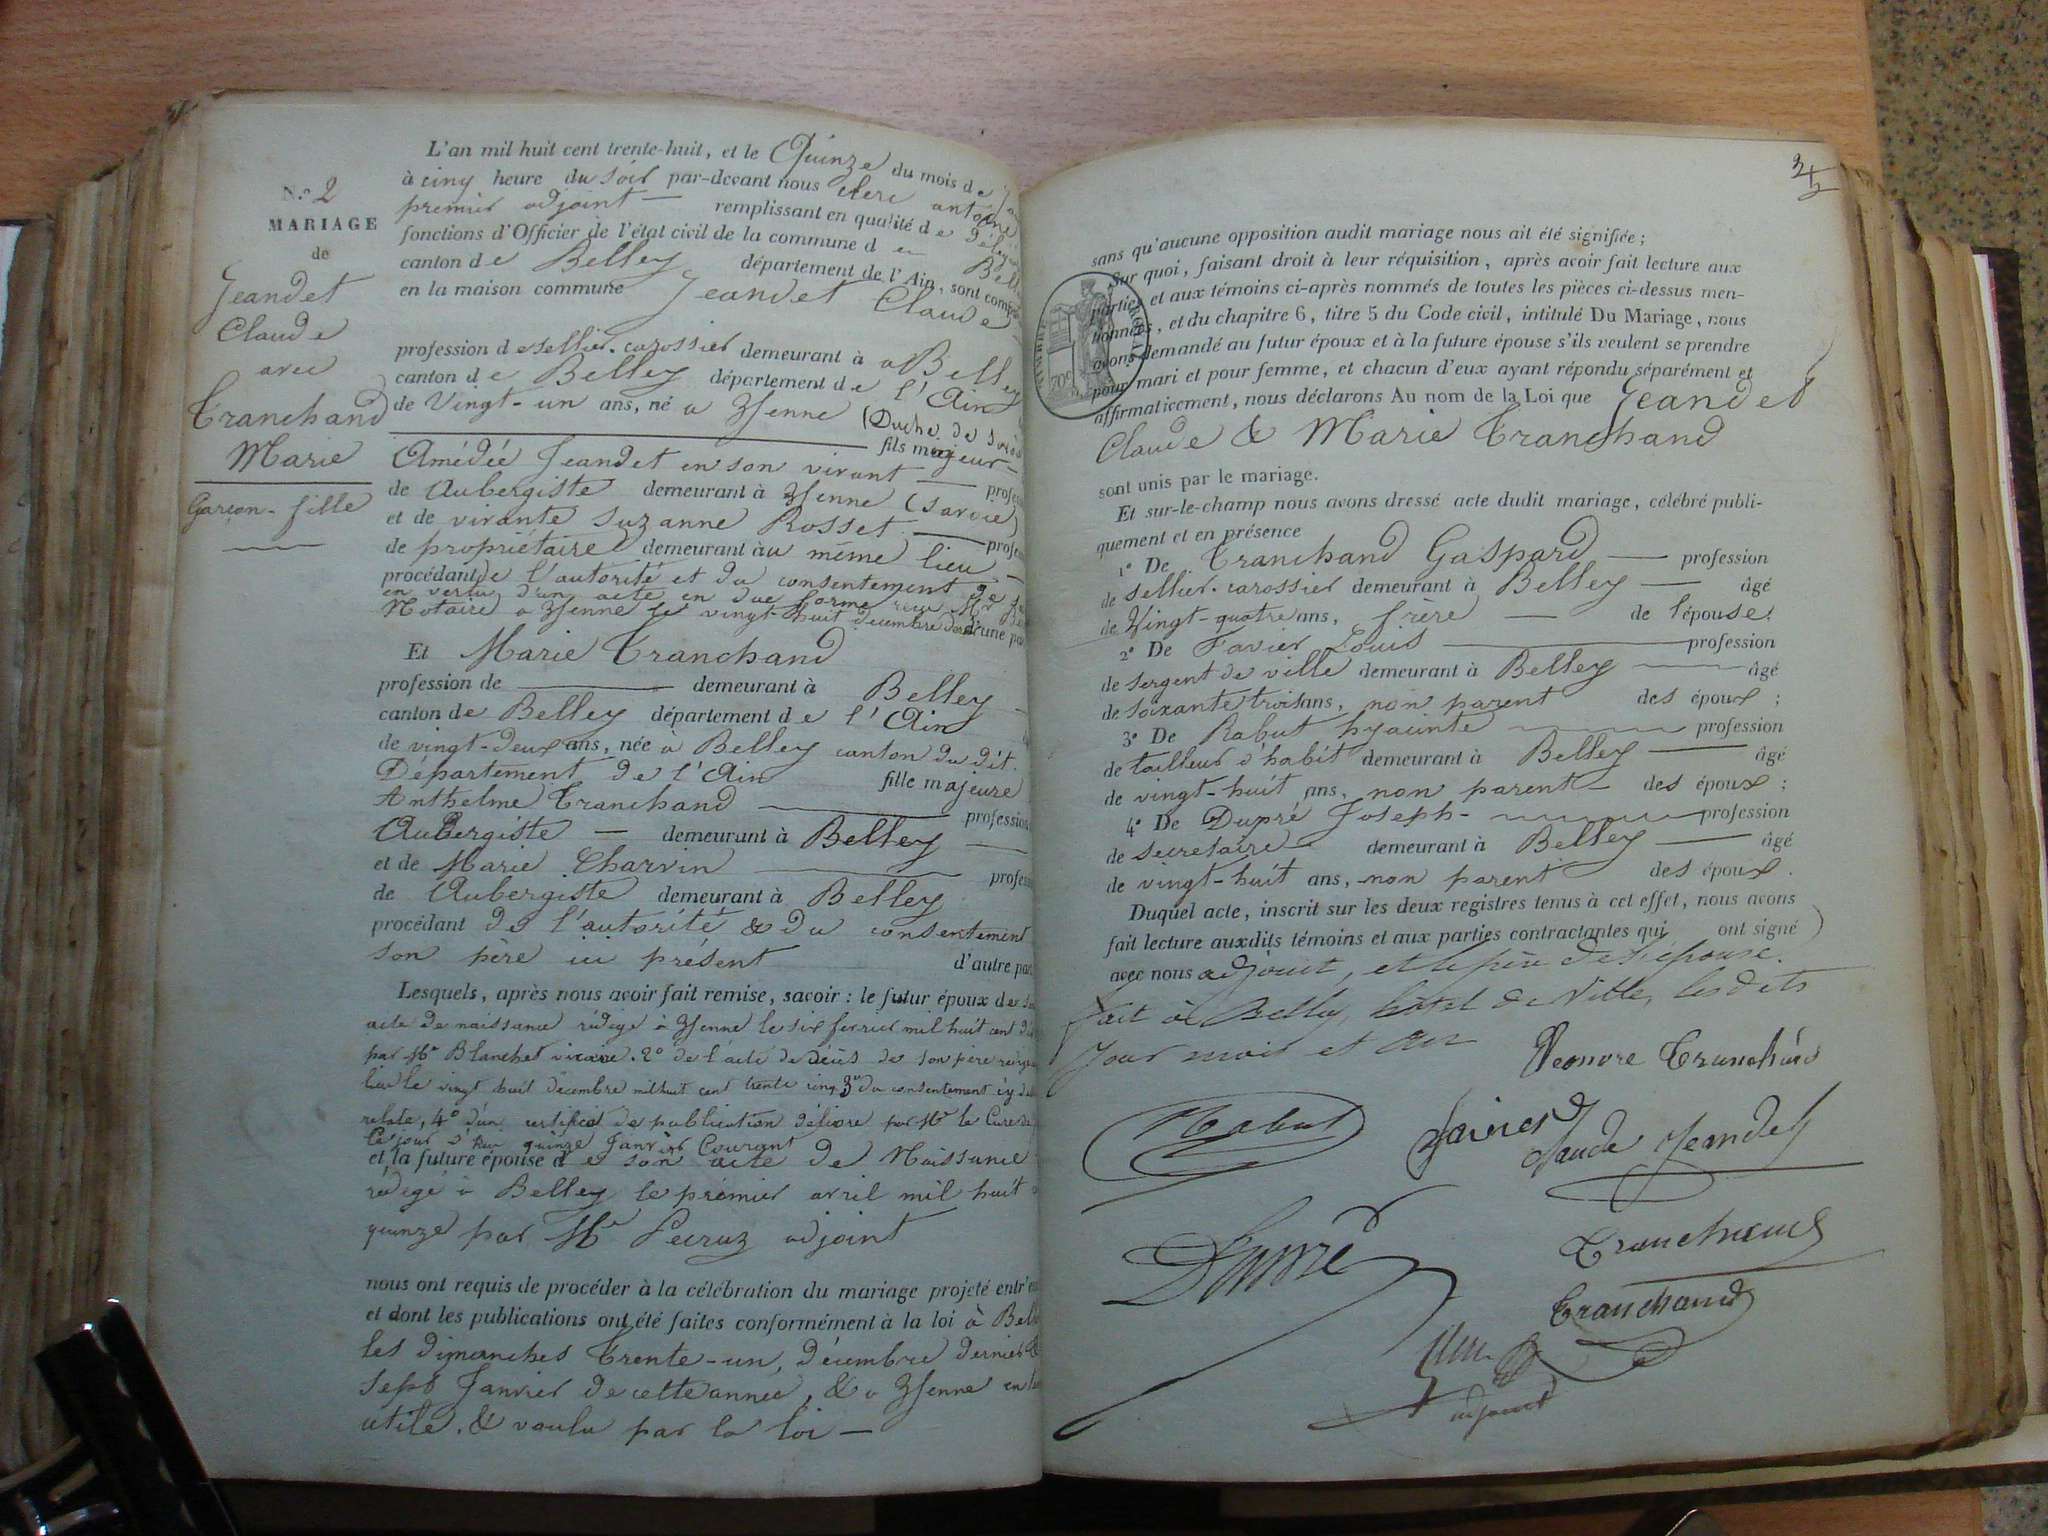 N.° 2
MARIAGE
de
Jeandet
Claude
avec
Tranchand
Marie
Garçon - fille
L'an mil huit cent trente-huit, et le Quinze du mois de
à cinq heure du soir par-devant nous clerc antoine
premier adjoint — remplissant en qualité de
fonctions d'Officier de l'état civil de la commune d
canton de Belley département de l'Ain, sont
en la maison commune Jeandet Claude
profession de sellier-carossier demeurant à a Belley
canton de Belley département de l'Ain
de Vingt-un ans, né a Yenne (Duché de
fils majeur
Amédée Jeandet en son vivant —
de Aubergiste demeurant à Yenne (Savoie)
et de vivante Suzanne Rosset —
de propriétaire demeurant au même lieu —
procédant de l'autorité et du consentement de
en vertu d'un acte en due forme reçu Mr
Notaire a Yenne le vingt-huit decembre d'une
Et Marie Tranchand
profession de — demeurant à Belley
canton de Belley département de l'Ain
de vingt-deux ans, née à Belley canton du dit.
Département de l'Ain fille majeure
Anthelme Tranchand — profession
Aubergiste — demeurant à Belley —
et de Marie Charvin —
de Aubergiste demeurant à Belley
procédant de l'autorité & du consentement
son père ici présent d'autre
Lesquels, après nous avoir fait remise, savoir : le futur époux de
acte de naissance rédigé à Yenne le six fevrier mil huit cent
par Mr Blanchet vicaire. 2° de l'acte de décès de son père
lieu le vingt huit décembre mil huit cent trente cinq 3° du consentement cy
relate, 4° d'un certificat de publication délivré par Mr le Curé
Ce jour d'hui quinze Janvier Courant
et la future épouse de son acte de Naissance
rédigé à Belley le premier avril mil huit
quinze par Mr Pecruz adjoint
nous ont requis de procéder à la célébration du mariage projeté
et dont les publications ont été faites conformément à la loi à
les dimanches Trente-un, décembre dernier &
sept Janvier de cette année, & a Yenne en
utile, & voulu par la loi —
sans qu'aucune opposition audit mariage nous ait été signifiée ;
Sur quoi, faisant droit à leur réquisition, après avoir fait lecture aux
parties et aux témoins ci-après nommés de toutes les pièces ci-dessus men-
tionnées, et du chapitre 6, titre 5 du Code civil, intitulé Du Mariage, nous
avons demandé au futur époux et à la future épouse s'ils veulent se prendre
pour mari et pour femme, et chacun d'eux ayant répondu séparément et
affirmativement, nous déclarons Au nom de la Loi que Jeandet
Claude & Marie Tranchand
sont unis par le mariage.
Et sur-le-champ nous avons dressé acte dudit mariage, célébré publi-
quement et en présence
1° De Tranchand Gaspard — profession
de sellier-carossier demeurant à Belley — âgé
de Vingt-quatre ans, frère — de l'épouse.
2° De Favier Louis — profession
de sergent de ville demeurant à Belley — âgé
de soixante trois ans, non parent des époux ;
3° De Rabut hyacinte — profession
de tailleur d'habit demeurant à Belley — âgé
de vingt-huit ans, non parent — des époux ;
4° De Dupré Joseph — profession
de secretaire — demeurant à Belley — âgé
de vingt-huit ans, non parent des époux.
Duquel acte, inscrit sur les deux registres tenus à cet effet, nous avons
fait lecture auxdits témoins et aux parties contractantes qui ont signé
avec nous adjoint, et le père de l'épouse.
fait à Belley, hôtel de Ville, les dits
jour mois et an
Tranchand
Rabut
Claude Jeandet
Dupré
Tranchand
Tranchand
adjoint